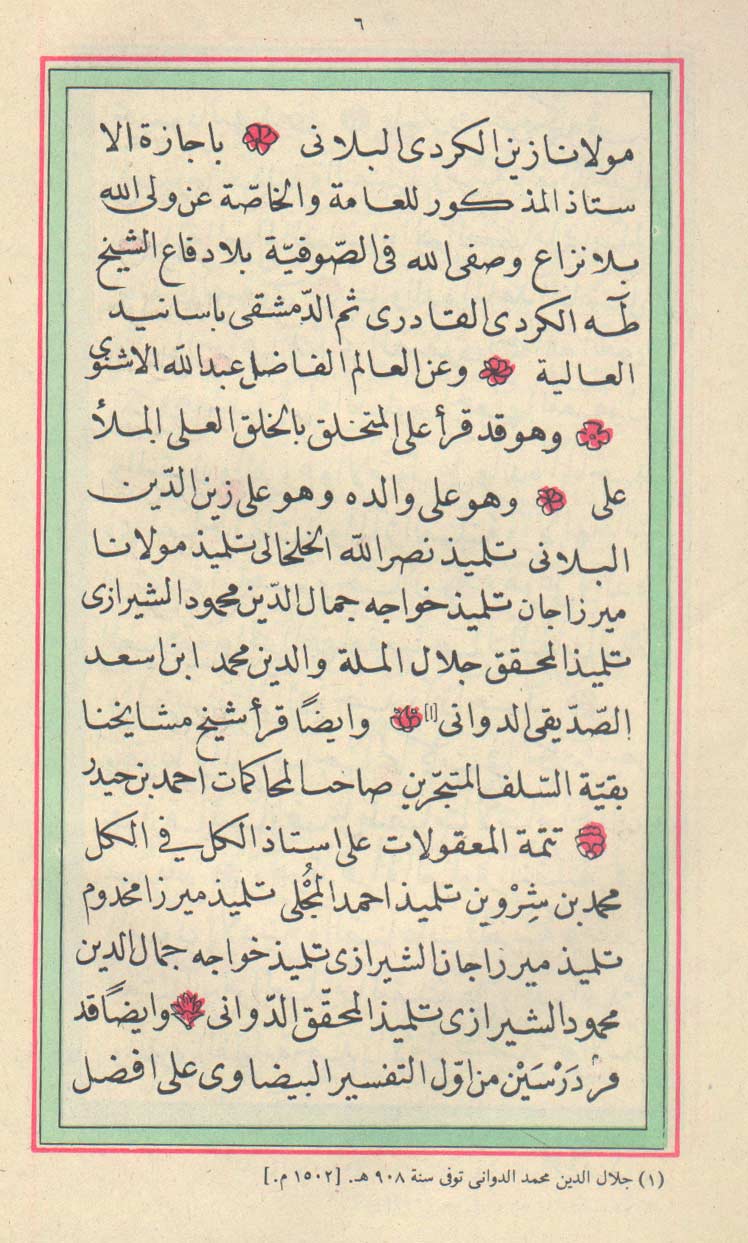 ٦
مولانا زين الكردى البلانى باجازة الا
ستاذ المذكور للعامة والخاصّة عن ولى الله
بلا نزاع وصفى الله فى الصّوفيّة بلا دفاع الشيخ
طٰه الكردى القادرى ثم الدّمشقى باسانيد
العالية وعن العالم الفاضل عبدالله الاشنوي
وهو قد قرأ على المتخلق بالخلق العلى الملأ
على وهو على والده وهو على زين الدّين
البلانى تلميذ نصر الله الخلخالى تلميذ مولانا
ميرزاجان تلميذ خواجه جمال الدّين محمود الشيرازى
تلميذ المحقق جلال الملة والدين محمد ابن اسعد
الصّدّيقى الدوانى [١] وايضًا قرأ شيخ مشايخنا
بقيّة السّلف المتبحّرين صاحب المحاكمات احمد بن حيدر
تتمّة المعقولات على استاذ الكل في الكل
محمد بن شِرْوين تلميذ احمد المُجْلى تلميذ ميرزا مخدوم
تلميذ ميرزاجان الشيرازى تلميذ خواجه جمال الدين
محمود الشيرازى تلميذ المحقّق الدّوانى وايضًا قد
قرأ دَرْسَيْن من اوّل التفسير البيضاوى على افضل
(١) جلال الدين محمد الدوانى توفى سنة ٩٠٨ هـ. [١٥٠٢ م.]